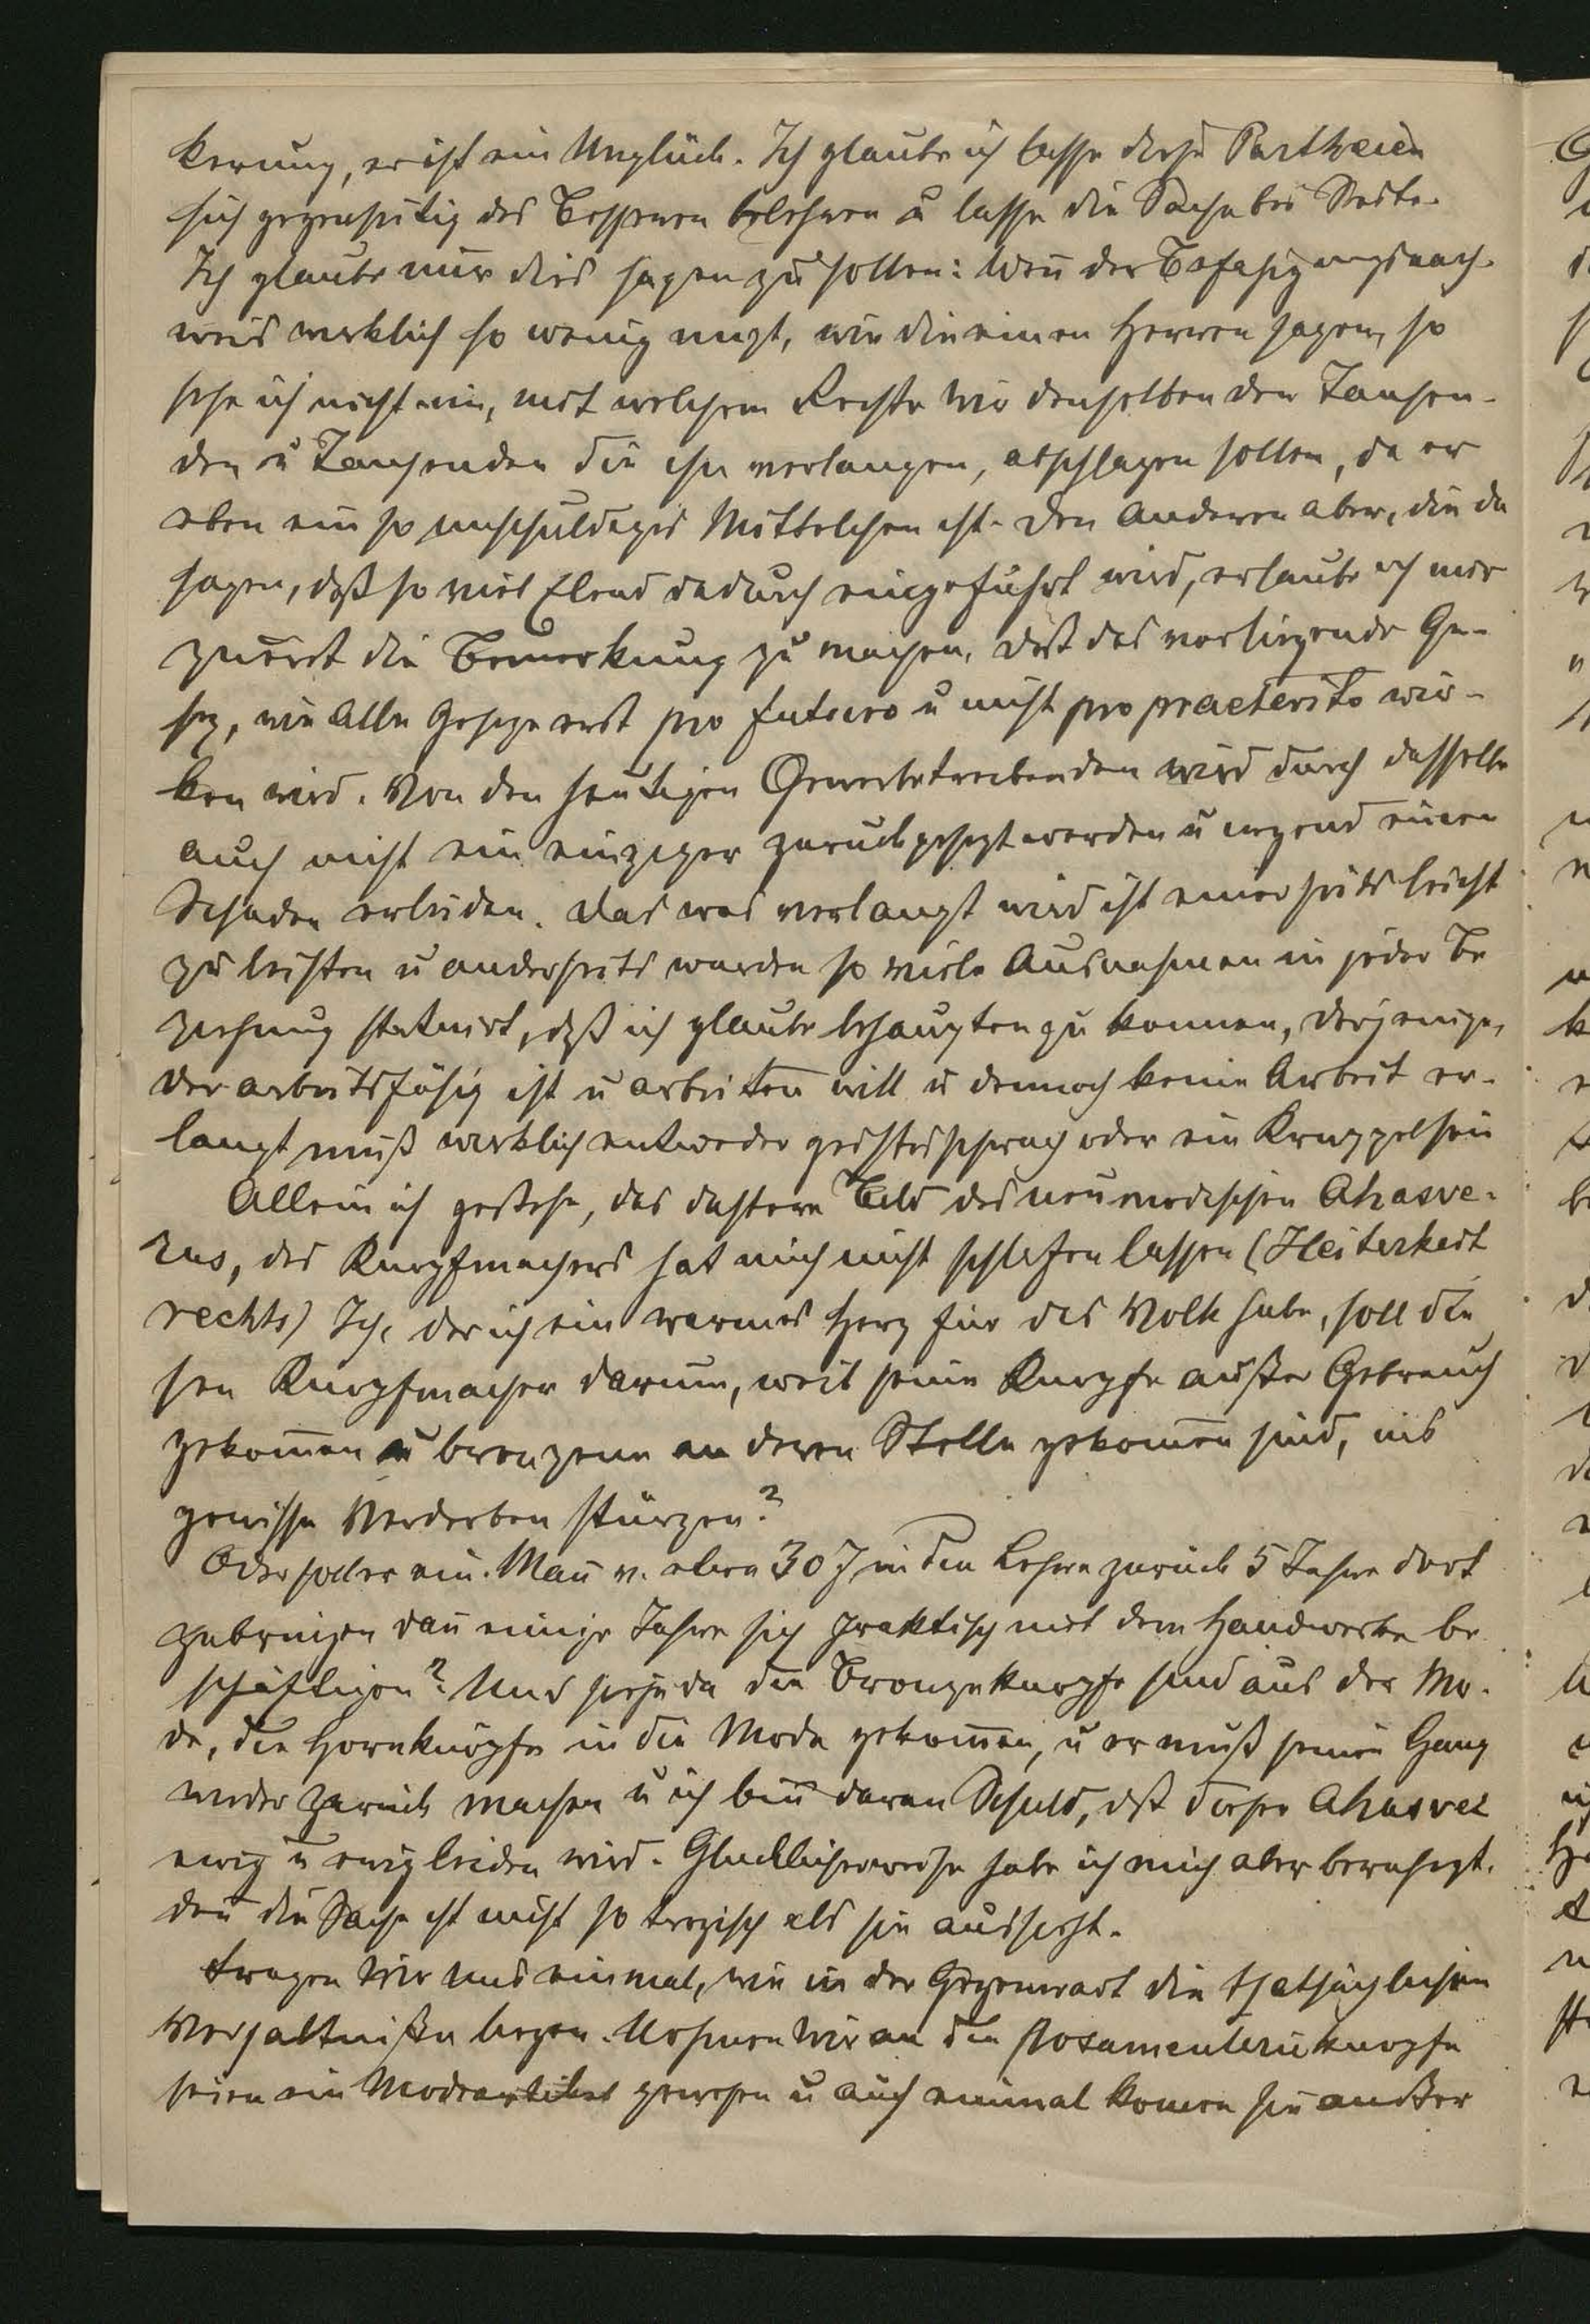 kerung, er ist ein Unglück. Ich glaube ich lasse diese Partheien
sich gegenseitig des Besseren belehren u lasse die Sache bei Seite.
Ich glaube nur dies sagen zu sollen: Weñ der Befähigungsnach-
weis wirklich so wenig nüzt, wie die einen Herren sagen, so
sehe ich nicht ein, mit welchem Rechte wir denselben den Tausen-
den u Tausenden die ihn verlangen, abschlagen sollen, da er
eben ein so unschuldiges Mittelchen ist. Den Anderen aber, die da
sagen, daß so viel Elend dadurch eingeführt wird, erlaube ich mir
zuerst die Bemerkung zu machen, daß das vorliegende Ge-
sez, wie Alle Geseze erst pro futuro u nicht pro praeterito wir-
ken wird. Von den heutigen Gewerbetreibenden wird durch dasselbe
auch nicht ein einziger zurückgesezt werden u irgend einen
Schaden erleiden. Das was verlangt wird ist einerseits leicht
zu leisten u anderseits wurden so viele Ausnahmen in jeder Be
ziehung statuirt, daß ich glaube behaupten zu können, derjenige,
der arbeitsfähig ist u arbeiten will u dennoch keine Arbeit er-
langt muß wirklich entweder geistesschwach oder ein Krüppel sein
Allein ich gestehe, das düstere Bild des neumodischen Ahasve-
rus, des Knopfmachers hat mich nicht schlafen lassen (Heiterkeit
rechts) Ich, der ich ein warmes Herz für das Volk habe, soll die
sen Knopfmacher darum, weil seine Knöpfe außer Gebrauch
gekom̄en u bronzene an deren Stelle gekom̄en sind, ins
gewisse Verderben stürzen?
Oder soll er ein Mañ v. etwa 30 J in die Lehre zurück 5 Jahre dort
zubringen dañ einige Jahre sich praktisch mit dem Handwerke be
schäftigen? Und siehe da die Bronzeknöpfe sind aus der Mo-
de, die Hornknöpfe in die Mode gekom̄en, u er muß seinen Gang
wieder zurück machen u ich biñ daran Schuld, daß dieser Ahasver
ewig u ewig leiden wird. Glücklicherweise habe ich mich aber beruhigt,
deñ die Sache ist nicht so tragisch als sie aussieht.
Fragen wir uns einmal, wie in der Gegenwart die thatsächlichen
Verhältniße liegen. Nehmen wir an die Posamenterieknöpfe
seien ein Modeartikel gewesen u auf einmal kom̄en sie außer